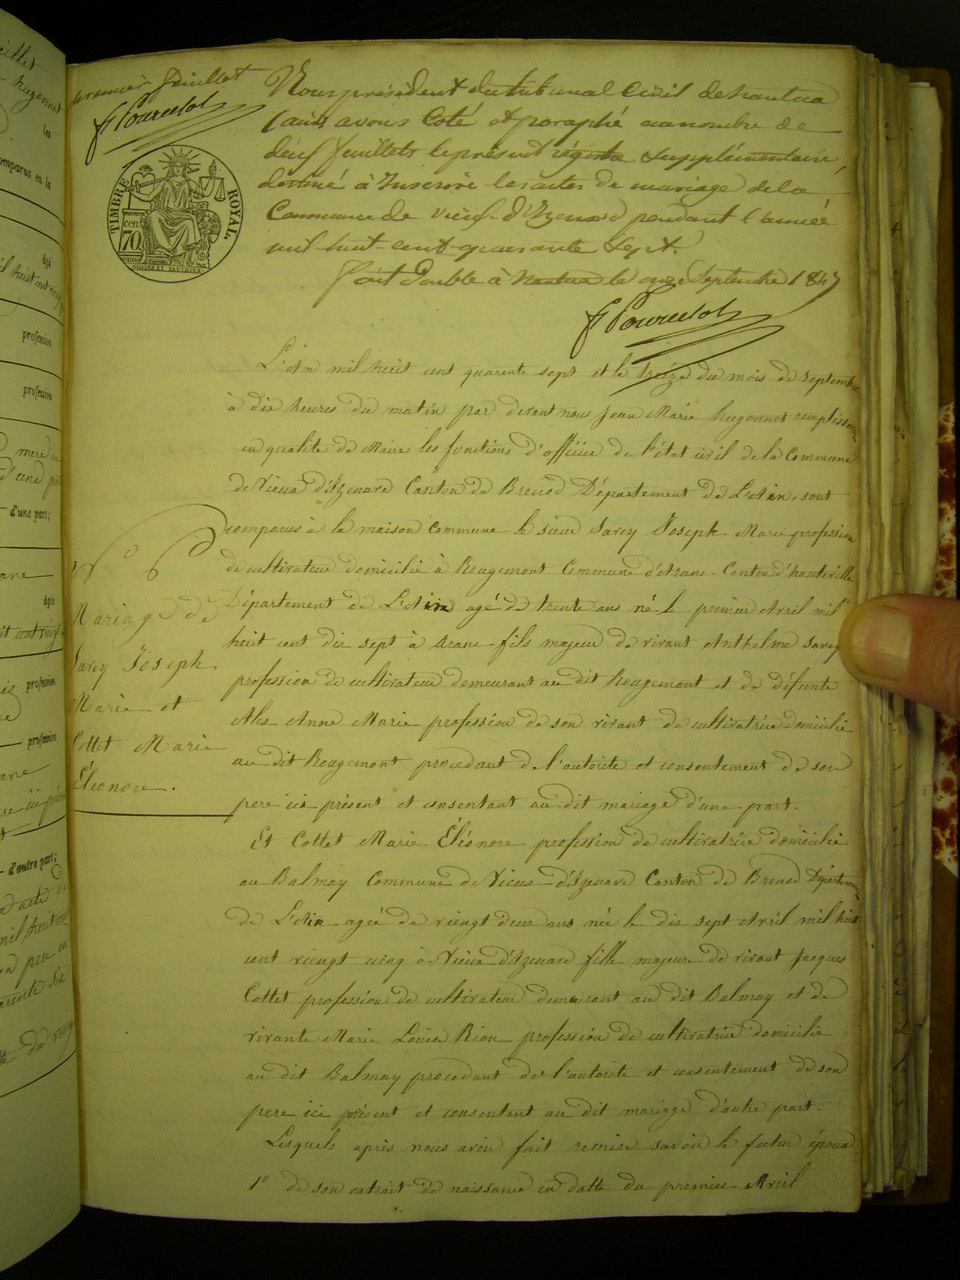 premier feuillet
Pourcelot
Nous président du tribunal Civil de Nantua
(ain) avons Coté et paraphé au nombre de
deux feuillets le présent régistre supplémentaire
destiné à Inscrire les actes de mariage de la
Commune de vieux-d'Izenave pendant l'année
mil huit-cent-quarante Sept.
fait Double à Nantua le onze Septembre 1847
Pourcelot
TIMBRE ROYAL.
cen 70
L'An mil huit cent quarante sept et le treize du mois de Septembre
à dix heures du matin par devant nous Jean Marie hugonnet remplissant
en qualité de Maire les fonctions d'officier de l'état civil de la Commune
de Vieux d'Izenave Canton de Brenod Département de L'Ain, sont
comparus à la maison commune le sieur Savey Joseph Marie profession
de cultivateur domicilié à Rougemont Commune d'Arane Canton d'hauteville
Département de L'Ain agé de trente ans né le premier Avril mil
huit cent dix sept à Arane fils majeur de vivant Anthelme Savey
profession de cultivateur demeurant au dit Rougemont et de défunte
Anne Marie profession de son vivant de cultivatrice domicilié
au dit Rougemont procedant de l'autorité et consentement de son
pere ici présent et consentant au dit mariage d'une part.
Et Cottet Marie Éléonore profession de cultivatrice domicilié
au Balmay Commune de Vieux-d'Izenave Canton de Brenod Département
de L'Ain agée de vingt deux ans née le dix sept Avril mil huit
cent vingt cinq à Vieux d'Izenave fille majeure de vivant Jacques
Cottet profession de cultivateur demeurant au dit Balmay et de
vivante Marie Louise Rion profession de cultivatrice domicilié
au dit Balmay procedant de l'autorité et consentement de son
pere ici présent et consentant au dit mariage d'autre part.
Lesquels après nous avoir fait remise savoir le futur époux
1° de son extrait de naissance en datte du premier Avril
N° 6
Mariage de
Savey Joseph
Marie et
Cottet Marie
Éléonore.
les
comparus en la
âgé
profession
profession
d'une part;
âgée
profession
profession
d'autre part;